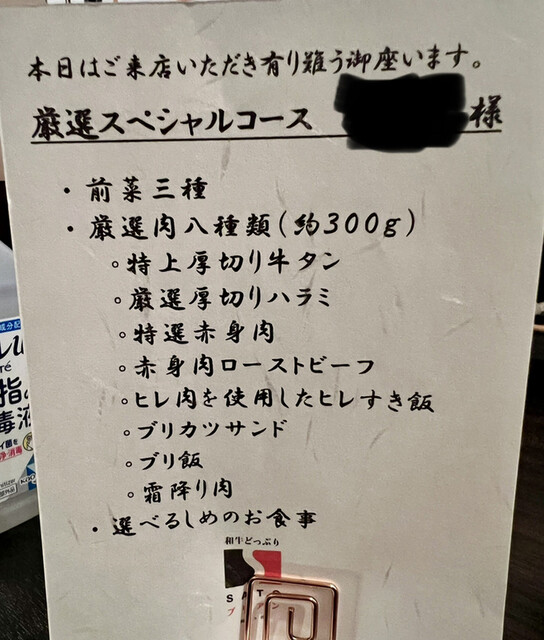 本日はご来店いただき有り難う御座います。
厳選スペシャルコース 様
・前菜三種
・厳選肉八種類(約300g)
。特上厚切り牛タン
。厳選厚切りハラミ
。特選赤身肉
。赤身肉ローストビーフ
。ヒレ肉を使用したヒレすき飯
。ブリカツサンド
。ブリ飯
。霜降り肉
・選べるしめのお食事
和牛どっぷり